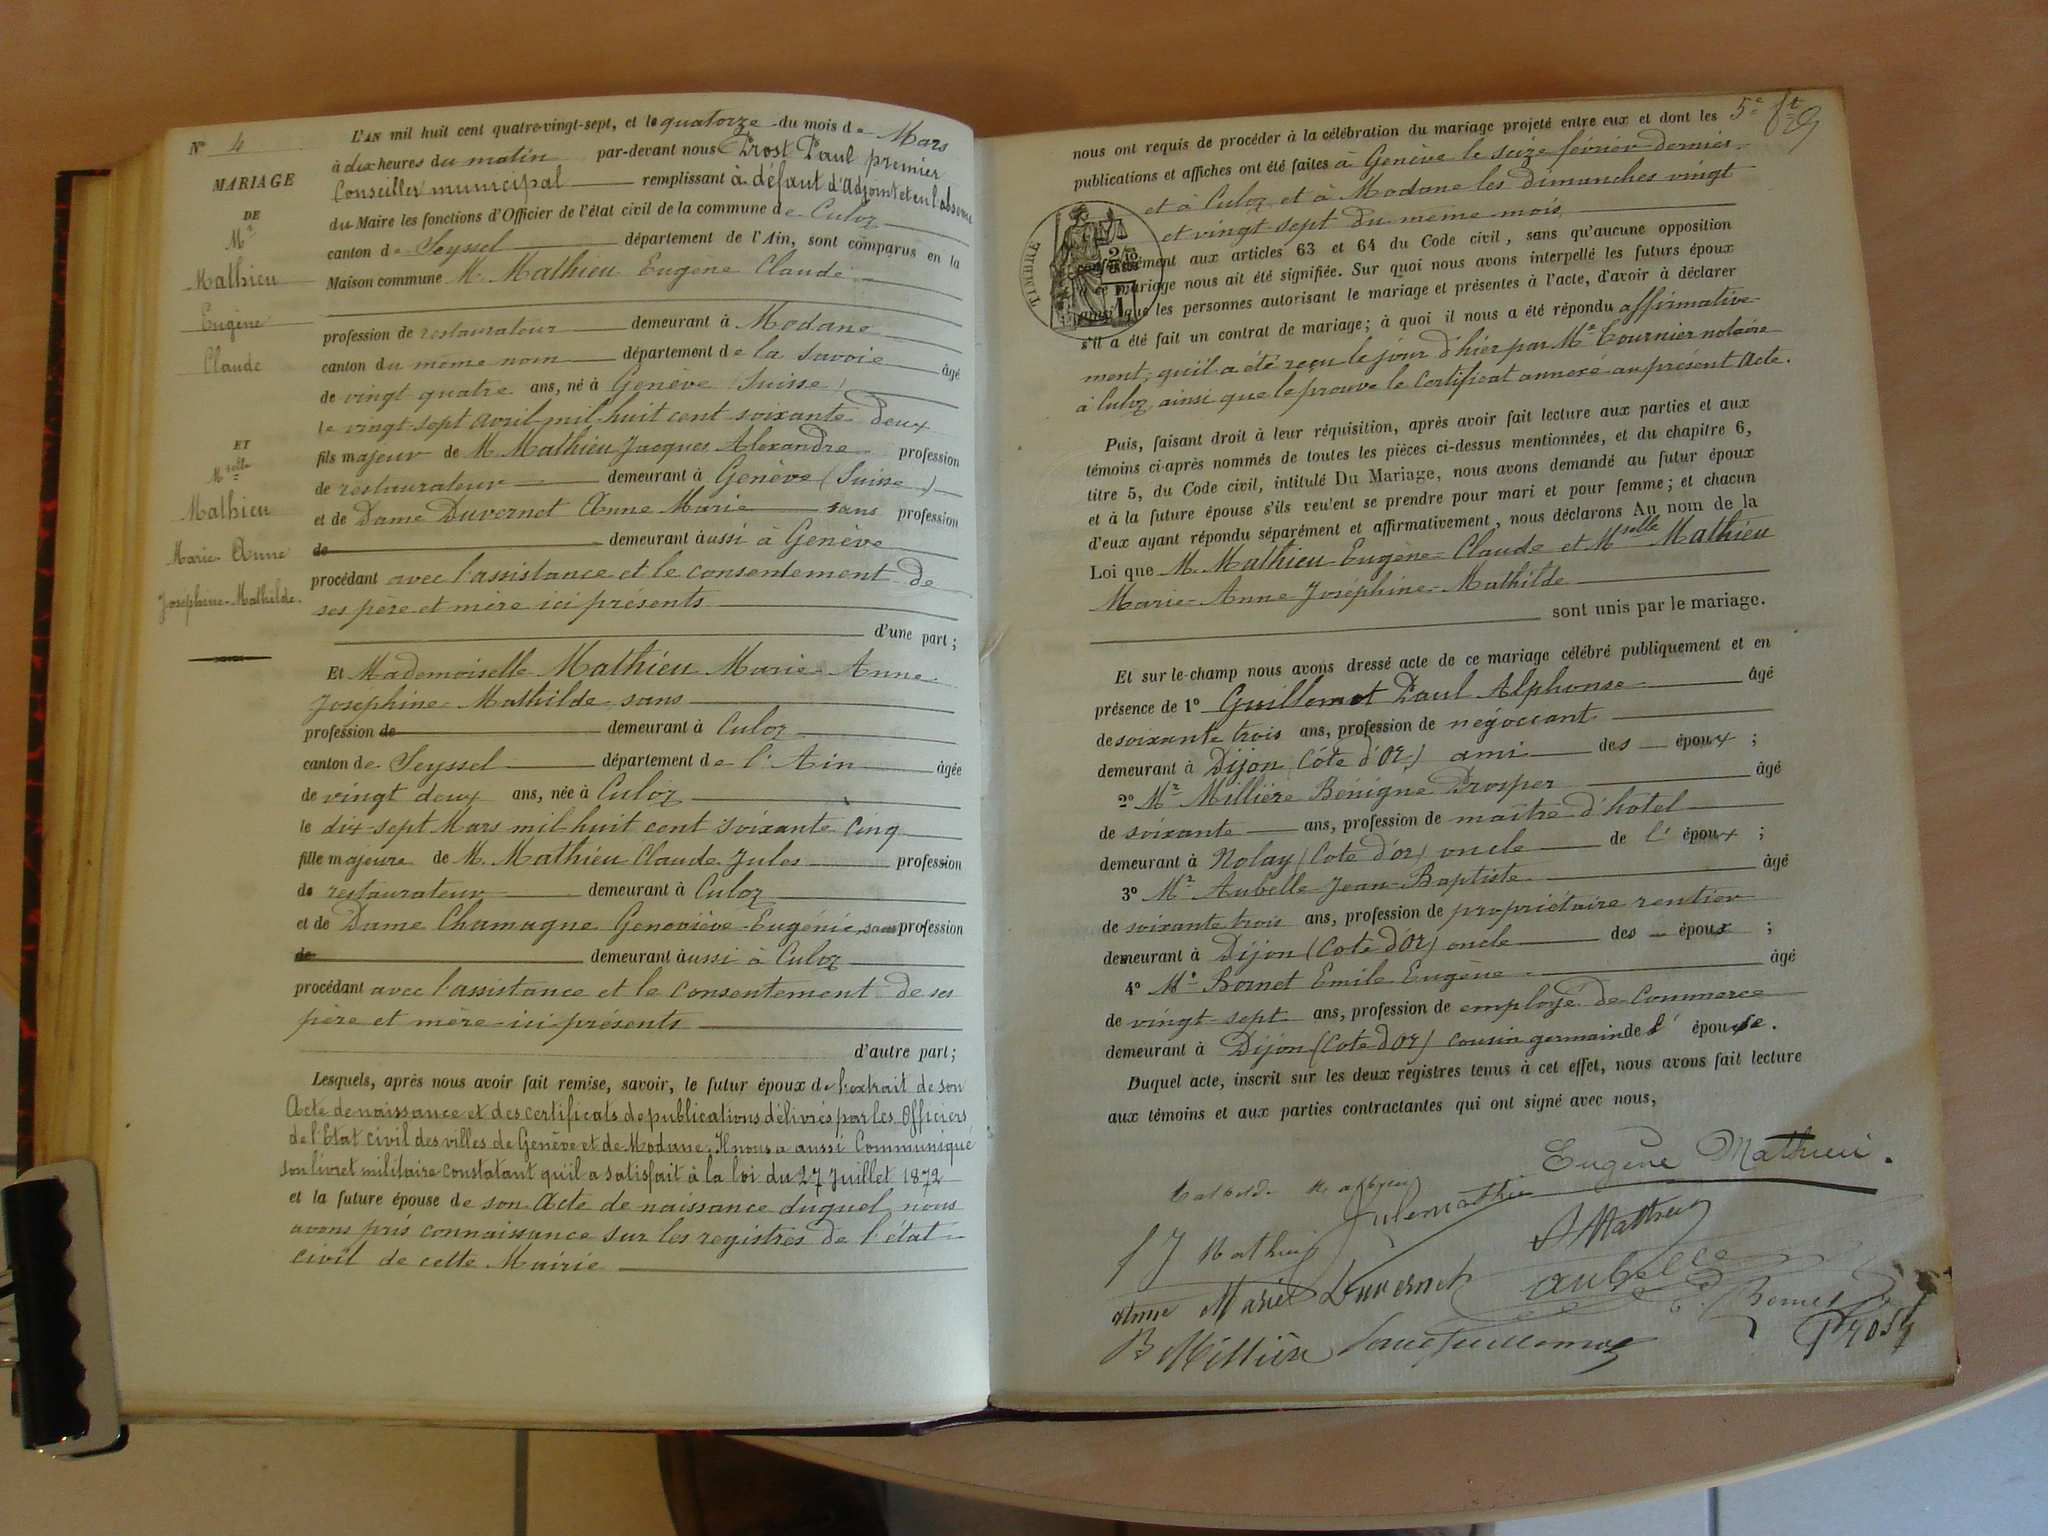 N° 4
MARIAGE
DE
Mr
Mathieu
Eugène
Claude
ET
Mselle
Mathieu
Marie-Anne
Joséphine-Mathilde.
L'AN mil huit cent quatre-vingt-sept, et le quatorze du mois de Mars
à dix heures du matin par-devant nous Prost Paul premier
Conseiller municipal remplissant à défaut d'adjoint et en l'absence
du Maire les fonctions d'Officier de l'état civil de la commune de Culoz
canton de Seyssel département de l'Ain, sont comparus en la
Maison commune M. Mathieu Eugène Claude
profession de restaurateur demeurant à Modane
canton du même nom département de la Savoie âgé
de vingt quatre ans, né à Genève (Suisse)
le vingt-sept avril mil-huit cent soixante-deux
fils majeur de M. Mathieu Jacques Alexandre profession
de restaurateur demeurant à Genève (Suisse)
et de Dame Duvernet Anne Marie sans profession
de demeurant aussi à Genève
procédant avec l'assistance et le consentement de
ses père et mère ici présents
d'une part;
Et Mademoiselle Mathieu Marie-Anne
Joséphine-Mathilde sans
profession de demeurant à Culoz
canton de Seyssel département de l'Ain âgée
de vingt deux ans, née à Culoz
le dix-sept Mars mil huit cent soixante cinq
fille majeure de M. Mathieu Claude Jules profession
de restaurateur demeurant à Culoz
et de Dame Chamagne Geneviève-Eugénie, sans profession
de demeurant aussi à Culoz
procédant avec l'assistance et le consentement de ses
père et mère ici présents
d'autre part;
Lesquels, après nous avoir fait remise, savoir, le futur époux de l'extrait de son
Acte de naissance et des certificats de publications délivrés par les Officiers
de l'Etat civil des villes de Genève et de Modane. Il nous a aussi Communiqué
son livret militaire constatant qu'il a satisfait à la loi du 27 Juillet 1872
et la future épouse de son Acte de naissance duquel nous
avons pris connaissance sur les registres de l'état
civil de cette Mairie
5e ft
nous ont requis de procéder à la célébration du mariage projeté entre eux et dont les
publications et affiches ont été faites à Genève le seize février dernier
et à Culoz et à Modane les dimanches vingt
et vingt-sept du même mois
TIMBRE
conformément aux articles 63 et 64 du Code civil, sans qu'aucune opposition
à ce mariage nous ait été signifiée. Sur quoi nous avons interpellé les futurs époux
ainsi que les personnes autorisant le mariage et présentes à l'acte, d'avoir à déclarer
s'il a été fait un contrat de mariage; à quoi il nous a été répondu affirmative-
ment, qu'il a été reçu le jour d'hier par Me Tournier notaire
à Culoz ainsi que le prouve le Certificat annexé au présent Acte.
Puis, faisant droit à leur réquisition, après avoir fait lecture aux parties et aux
témoins ci-après nommés de toutes les pièces ci-dessus mentionnées, et du chapitre 6,
titre 5, du Code civil, intitulé Du Mariage, nous avons demandé au futur époux
et à la future épouse s'ils veulent se prendre pour mari et pour femme; et chacun
d'eux ayant répondu séparément et affirmativement, nous déclarons Au nom de la
Loi que M. Mathieu Eugène-Claude et Mselle Mathieu
Marie-Anne-Joséphine-Mathilde
sont unis par le mariage.
Et sur-le-champ nous avons dressé acte de ce mariage célébré publiquement et en
présence de 1° Guillemot Paul Alphonse âgé
de soixante trois ans, profession de négociant
demeurant à Dijon (Côte d'Or) ami des époux;
2° Mr Millière Bénigne Prosper âgé
de soixante ans, profession de maître d'hôtel
demeurant à Nolay (Côte d'Or) oncle de l'époux;
3° Mr Aubelle Jean-Baptiste âgé
de soixante trois ans, profession de propriétaire rentier
demeurant à Dijon (Côte d'Or) oncle des époux;
4° Mr Bornet Emile Eugène âgé
de vingt-sept ans, profession de employé de Commerce
demeurant à Dijon (Côte d'Or) cousin germain de l'épouse.
Duquel acte, inscrit sur les deux registres tenus à cet effet, nous avons fait lecture
aux témoins et aux parties contractantes qui ont signé avec nous,
Eugène Mathieu.
Jules Mathieu
J Mathieu
A Mathieu
Anne Marie Duvernet
Aubelle
E. Bornet
B Millière
Paul Guillemot
Prost